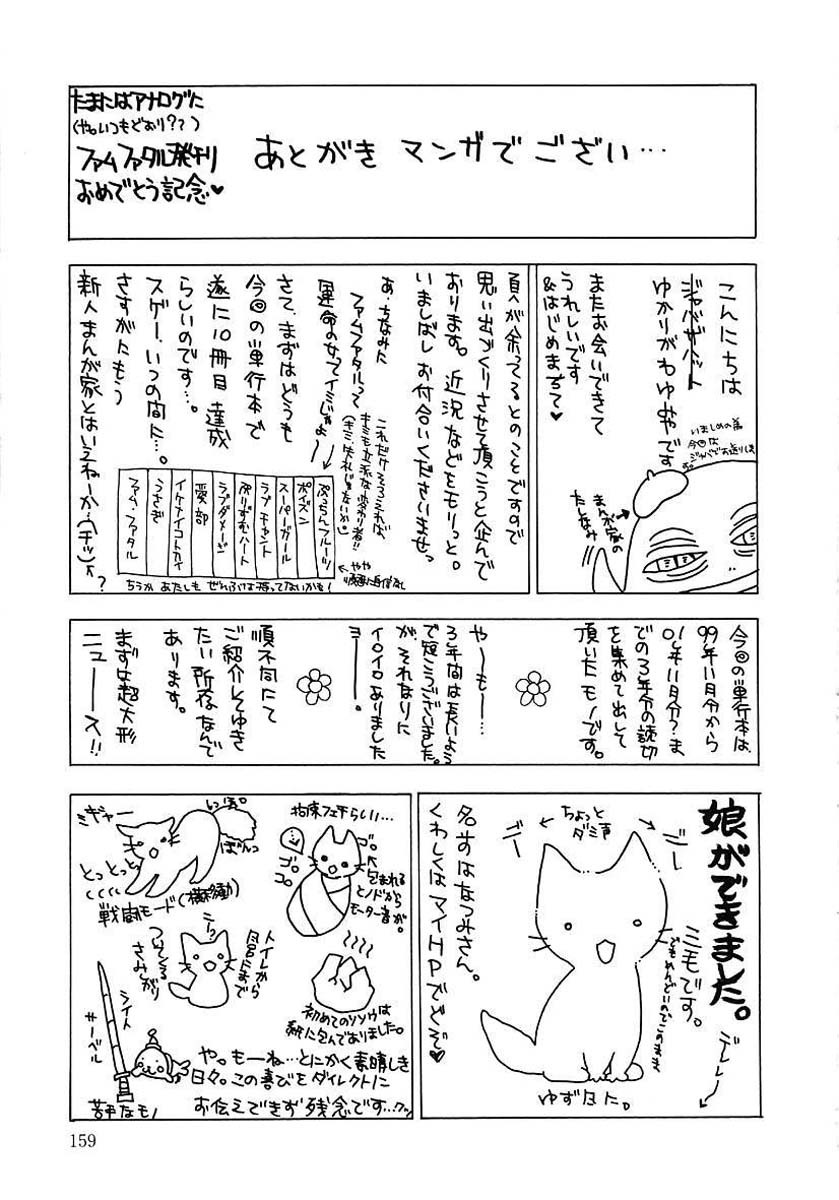 たまにはアナログに
(やーいつもどおり??)
ファムファタル発刊
おめでとう記念♥
あとがき マンガで ござい…
こんにちは
ジャバザハット
ゆかりがわゆみやです
いましめの為
今回は
ジャバでお送りします。
またお会いできて
うれしいです
&はじめまちて♥
まんが家の
たしなみ
頁が余ってるとのことですので
思い出づくりさせて頂こうと企んで
おります。近況などをモリっと。
いましばしお付合いくださいませっ
あ、ちなみに
ファムファタルって
運命の女ってイミじゃよ〜
これだけそろえれば、
キミも立派な変わり者!!
(キミは失礼じゃないか。)
さて、まずはどうも
今回の単行本で
遂に10冊目達成
らしいのです…。
スゲー、いつの間に…。
さすがにもう
新人まんが家とはいえねーか(チッ)
?
ぷっちんフルーツ
ポイズン
スーパーガール
ラブチャント
ぷりずむハート
ラブダメージ
愛部
イケナイコトカイ
うさぎ
ファム・ファタル
←やや
順番に自信なし
ちうか あたしも ぜんぶは持ってないかも!
今回の単行本は、
99年11月分から
01年11月分?ま
での3年分の読切
を集めて出して
頂いたモノです。
や〜も〜…
3年間は長いよう
で短こうございました。
が、それなりに
イロイロありました
ヨー。
順不同にて
ご紹介してゆき
たい所存なんで
あります。
まずは超大形
ニュース!!
娘ができました。
三毛です。
でもめんどいのでこのまま
デレレー
ちょっと
ダミ声
ゴー
ゴー
名すはなつみさん。
くわしくはマイHPでどぞ♥
ゆず日た。
ミギャー
しっぽ。
ぼんっ
とっとっ
戦闘モード(横移動)
拘束フェチらしい…
ゴロ
ゴロ
ゴロ
包まれる
とノドから
モーター音が。
トイレから
風呂まで
ついてくる
さみしがり
初めてのウンウは
紙に包んでありました。
シイト
サーベル
苦手なモノ
や。もーね…とにかく素晴しき
日々。この喜びをダイレクトに
お伝えできず残念です…クッ
159